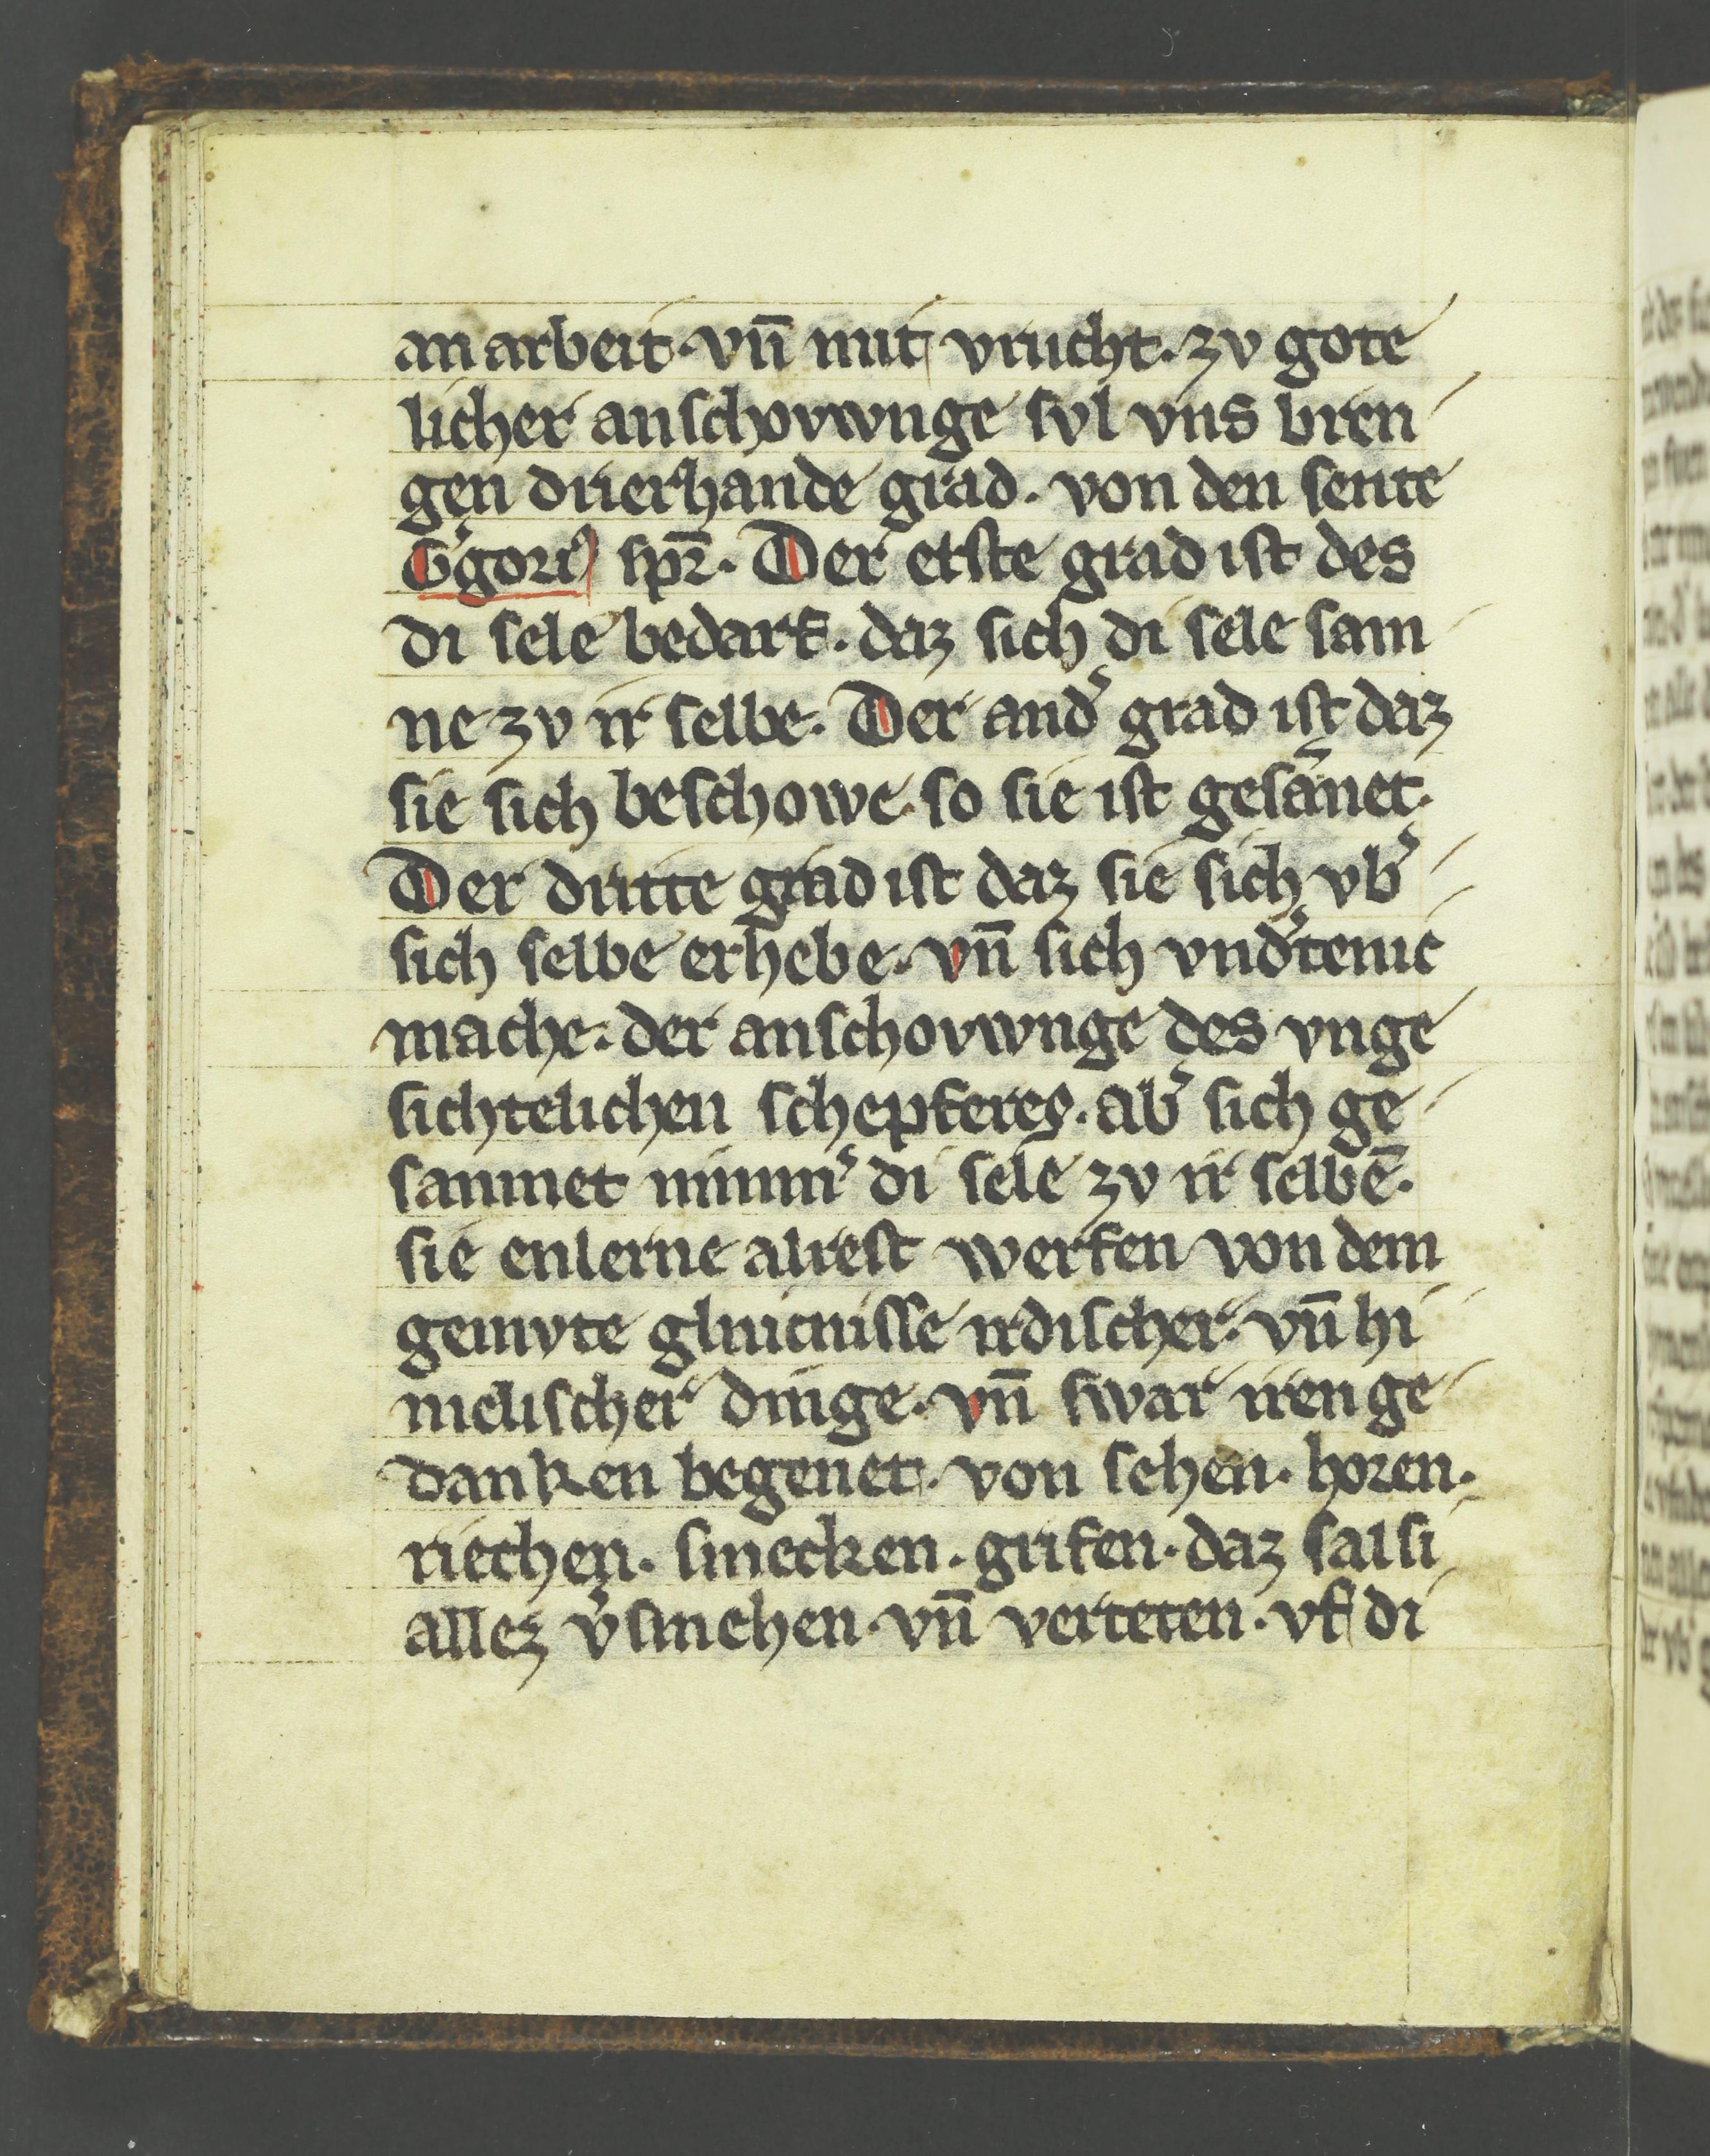 an arbeit · vn̄ mit vrucht · zv gote
licher anschovwnge svl vns bren
gen drierhande grad · von den sente
G̓gori⁹ spr̄ · Der erste grad ist des
di sele bedarf · daz sich di sele sam
ne zv ir selbe · Der and̓ grad ist daz
sie sich beschowe · so sie ist gesāmet ·
Der dritte grad ist daz sie sich vb̓
sich selbe erhebe · vn̄ sich vnd̓tenic
mache · der anschovwnge des vnge
sichtelichen schepferes · ab̓ sich ge
sammet nimm̓ di sele zv ir selbē ·
sie enlerne alrest werfen von dem
gemvte glìicnisse irdischer · vn̄ hi
melischer dinge · vn̄ swar iren ge
danken begenet · von sehen · horen ·
riechen · smecken · grifen · daz sal si
allez v̓smehen · vn̄ verteten · vf di